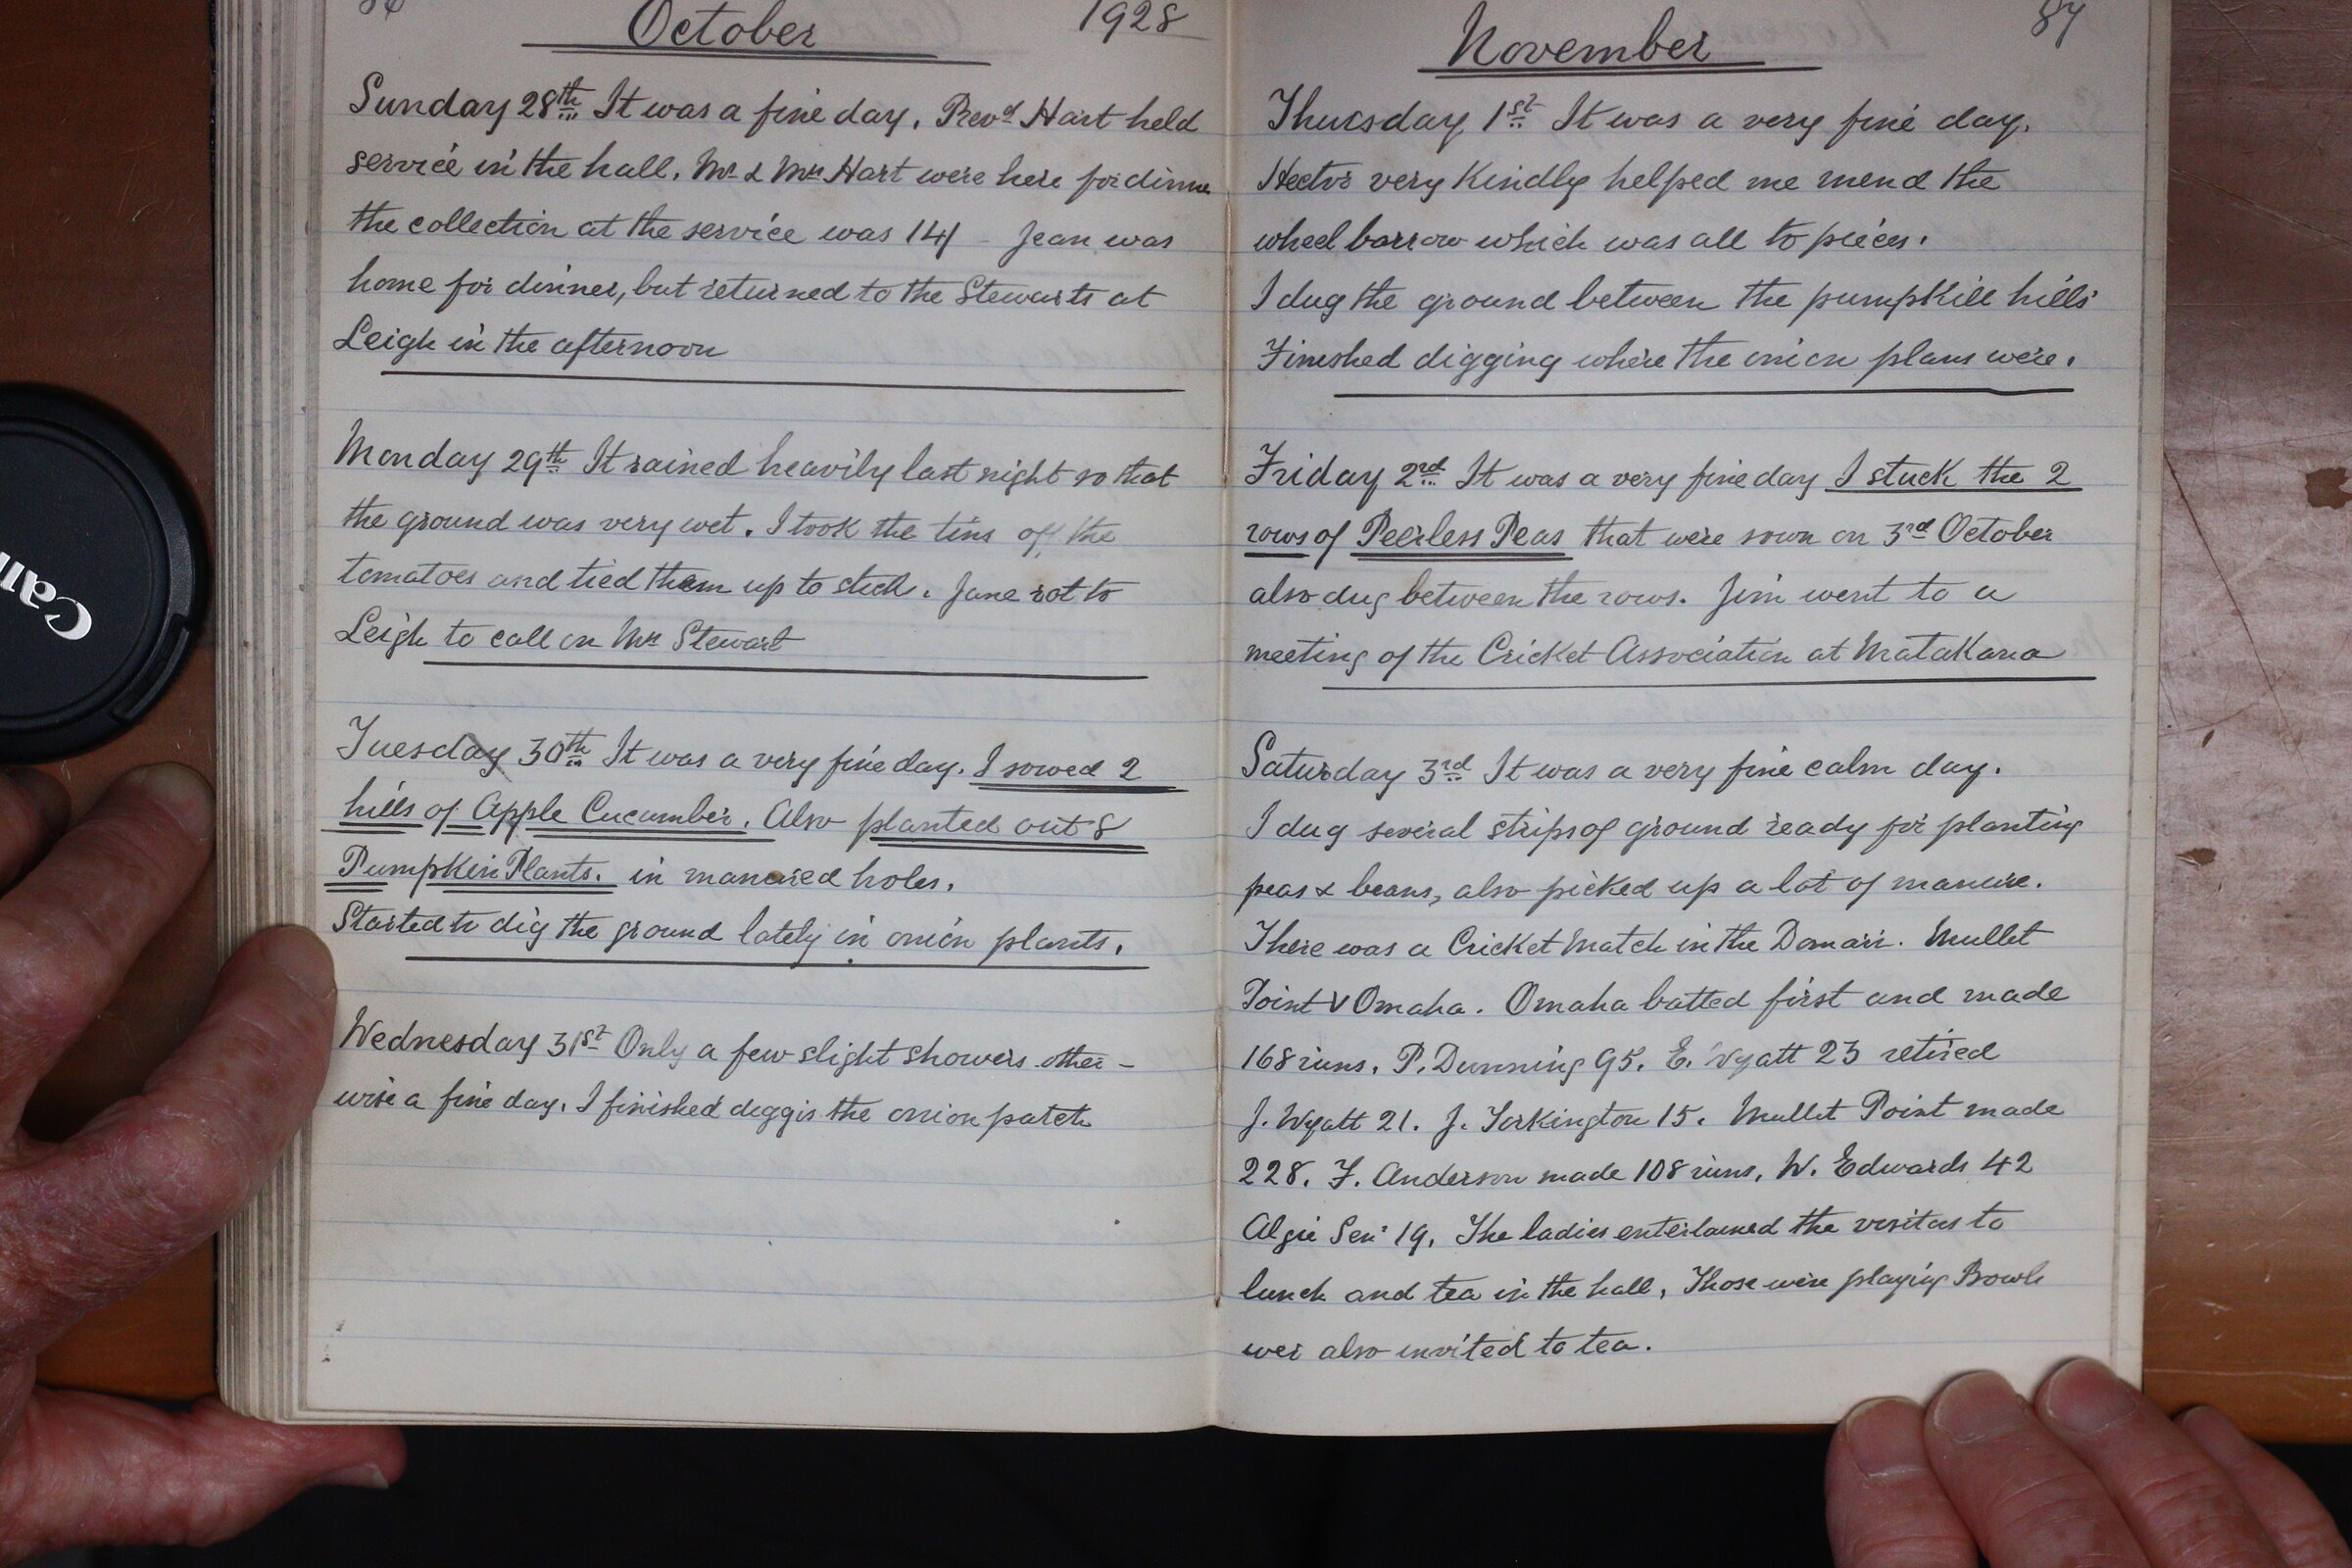 October 1928
Sunday 28th It was a fine day. Revd Hart held
service in the hall. Mr & Mrs Hart were here for dinner
the collection at the service was 14/- Jean was
home for dinner, but returned to the Stewarts at
Leigh in the afternoon
Monday 29th It rained heavily last night so that
the ground was very wet. I took the tins off the
tomatoes and tied them up to stick. Jane rot to
Leigh to call on Mrs Stewart
Tuesday 30th It was a very fine day. I sowed 2
hills of Apple Cucumber. Also planted out 8
Pumpkin Plants. in manured holes.
Started to dig the ground lately in onion plants.
Wednesday 31st Only a few slight showers other-
wise a fine day. I finished diggis the onion patch
87
November
Thursday 1st It was a very fine day.
Hector very kindly helped me mend the
wheel barrow which was all to pieces.
I dug the ground between the pumpkin hills
Finished digging where the onion plans were.
Friday 2nd It was a very fine day I stuck the 2
rows of Peerless Peas that were sown on 3rd October
also dug between the rows. Jim went to a
meeting of the Cricket Association at Matakana
Saturday 3rd It was a very fine calm day.
I dug several strips of ground ready for planting
peas & beans, also picked up a lot of manure.
There was a Cricket Match in the Domain. Mullet
Point v Omaha. Omaha batted first and made
168 runs. P. Dunning 95. E. Wyatt 23 retired
J. Wyatt 21. J. Torkington 15. Mullet Point made
228. F. Anderson made 108 runs, W. Edwards 42
Algie Senr 19. The ladies entertained the visitors to
lunch and tea in the hall, Those were playing Bowls
wer also invited to tea.
Can